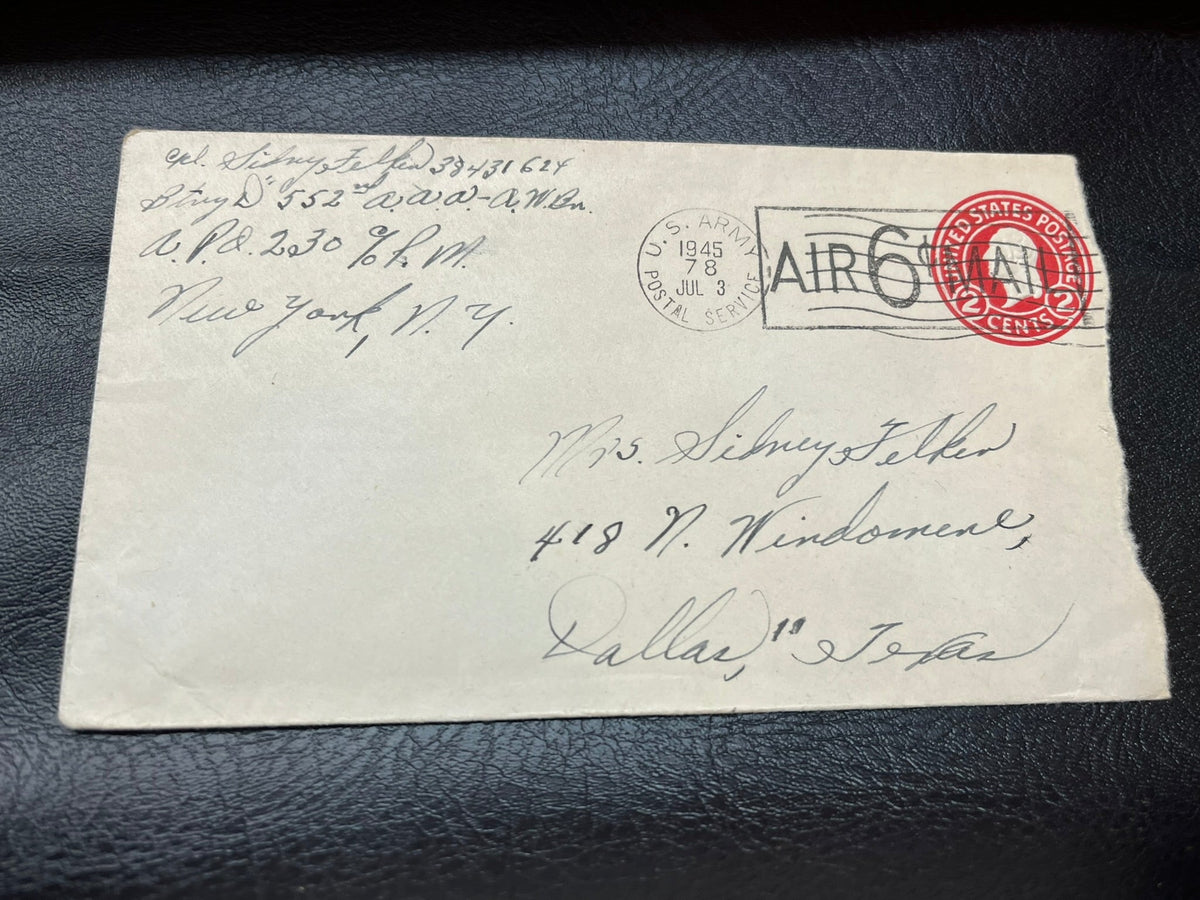 Cpl. Sidney Felken 38431624
Btry D" 552nd A.A.A-A.W.Bn.
A.P.O. 230 c/o P. M.
New York, N. Y.
U.S. ARMY
1945
78
JUL 3
POSTAL SERVICE
AIR 6¢ MAIL
UNITED STATES POSTAGE
2 CENTS 2
Mrs. Sidney Felken
418 N. Windomere,
Dallas, 11 Texas